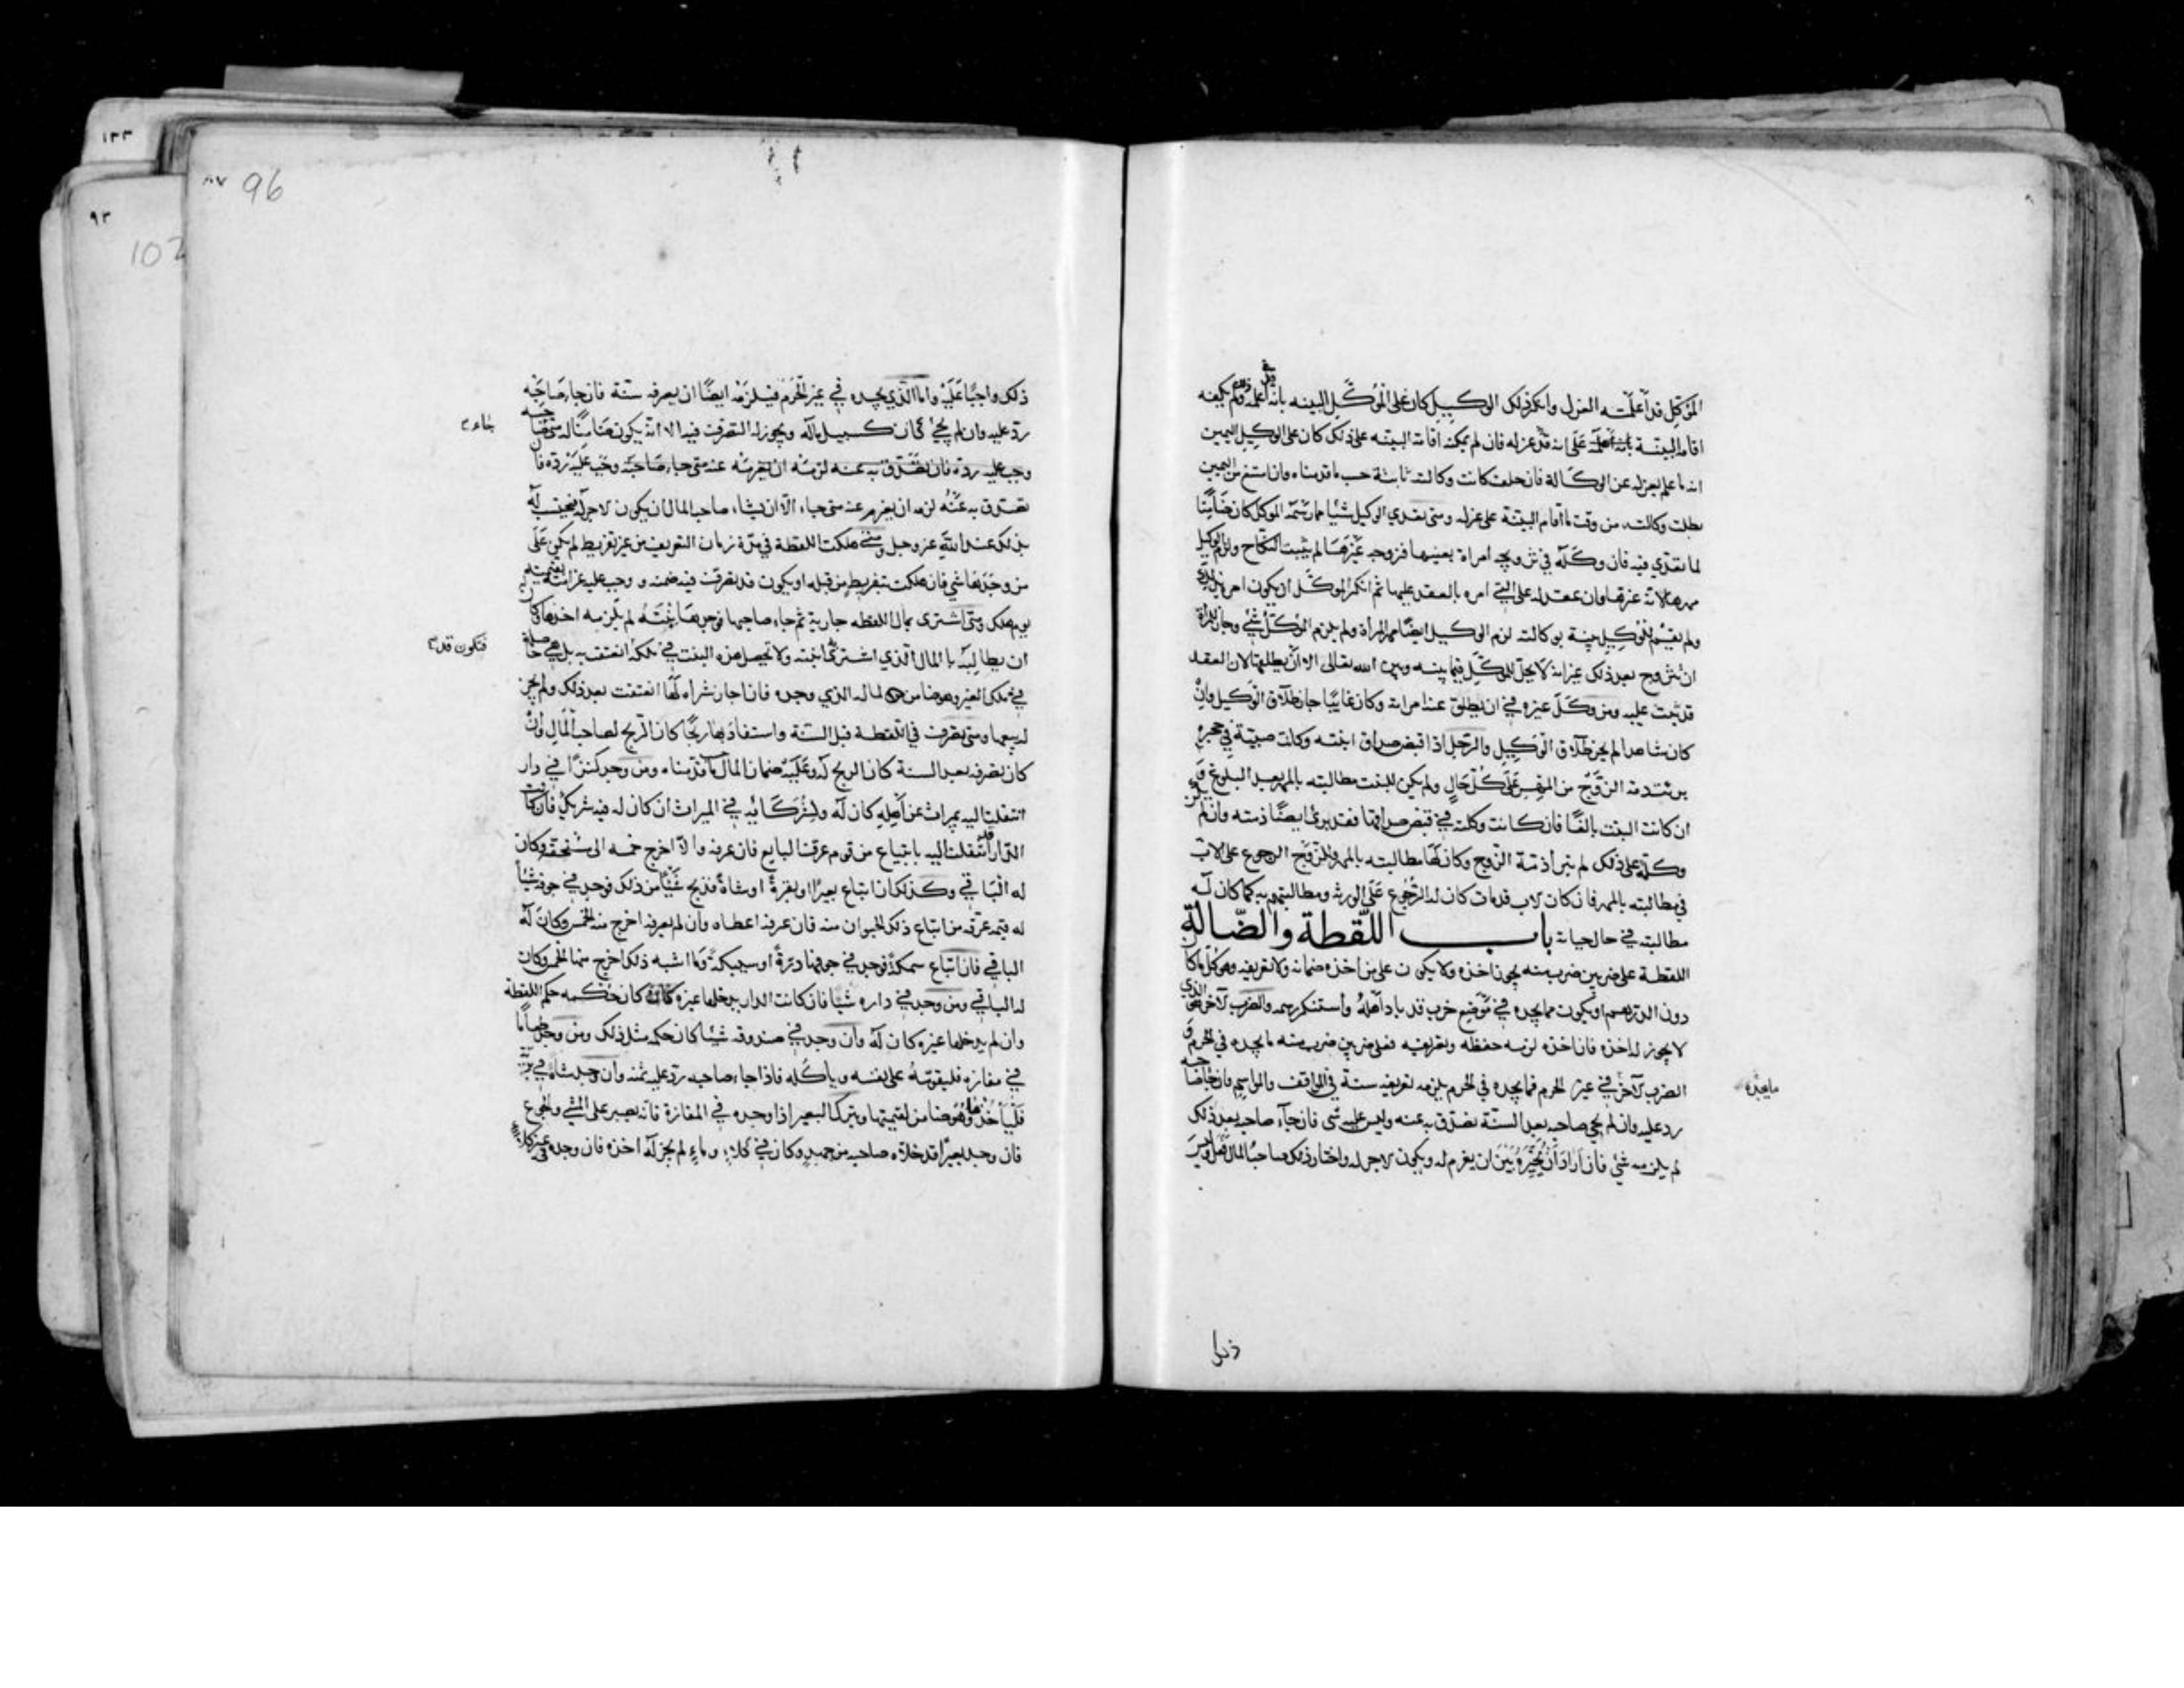 الموكّل قد أعلمته العزل وانكر ذلك الوكيل كان على الموكّل البينه بانه اعلمه فان لم يمكنه
اقامة البيّنة بانه اعلمه على انه قد عزله فان لم يمكنه اقامة البينه على ذلك كان على الوكيل اليمين
انه ما علم بعزله عن الوكالة فان حلف كانت وكالته ثابتة حسب ما قدمناه وان امتنع من اليمين
بطلت وكالته من وقت ما أقام البيّنة على عزله ومتى تعدي الوكيل شيئا مما رسمه الموكل كان ضامنًا
لما تعدي فيه فان وكّله في تزويج امراة بعينها فزوجه غيرها لم يثبت النكاح ولزم الوكيل
مهرها لانه غرّها وان عقد له على التي امره بالعقد عليها ثم انكر الموكّل ان يكون امره بذلك
ولم يقم للوكيل بينة بوكالته لزم الوكيل ايضًا مهر المرأة ولم يلزم الموكّل شئ وجاز للمرأة
ان تتزوج بعد ذلك غير انه لا يحلّ للموكّل فيما بينه وبين الله تعالى الا ان يطلقها لان العقد
قد ثبت عليه ومن وكّل غيره في ان يطلق عنه امراته وكان غايبًا جاز طلاق الوكيل وان
كان شاهدا لم يجز طلاق الوكيل والرّجل اذا قبض صداق ابنته وكانت صبيّة في حجره
برئت ذمة الزوج من المهر على كل حال ولم يكن للبنت مطالبته بالمهر بعد البلوغ
ان كانت البنت بالغًا فان كانت وكلته في قبض صداقها فقد برئ ايضًا ذمته وان لم تكن
وكلته على ذلك لم تبرأ ذمّة الزوج وكان لها مطالبته بالمهر وللزوج الرجوع على الاب
في مطالبته بالمهر فان كان الاب قد مات كان له الرّجوع على الورثه ومطالبتهم به كما كان له
مطالبته في حال حياته باب اللّقطة والضّالّة
اللقطة على ضربين ضرب منه يجوز اخذه ولا يكون على من اخذه ضمانه ولا تعريفه وهو كل ما كان
دون الدرهم او يكون مما يجده في موضع خرب قد باد اهله واستنكر رسمه والضرب الآخر هو الذي
لا يجوز له اخذه فان اخذه لزمه حفظه وتعريفه فهو على ضربين ضرب منه ما يجده في الحرم و
الضرب الآخر في غير الحرم فما يجده في الحرم يلزمه تعريفه سنة في المواقف والمواسم فان جاء صاحبه
ما يجده
رد عليه وان لم يجئ صاحبه بعد السّنة تصدّق به عنه وليس عليه شئ فان جآء صاحبه بعد ذلك
لم يلزمه شئ فان اراد ان يخيّره بين ان يغرم له ويكون الاجر له واختار ذلك صاحب المال فعل وليس
ذلك
96
ذلك واجبًا عَلَيْه واما الّذي يجده في غير الحرم فيلزمه ايضًا ان يعرفه سنة فان جاء صاحبه
ردّ عليه وان لم يجئ كان كسبيل ماله ويجوز له التصرف فيه الا انه يكون ضامنًا له متى صاحبه
جاء
وجب عليه ردّه فان تصدّق به عنه لزمه ان يغرمه عنه متى جاء صاحبه وجب عليه ردّه فان
تصدّق به عنه لزمه ان يغرم عنه متى جاء الّا ان يشاء صاحب المال ان يكون الاجر له فيحتسب له
بذلك عند الله عز وجل ومتى هلكت اللقطة في مدّة زمان التعريف من غير تفريط لم يكن على
من وجدها شئ فان هلكت بتفريط من قبله او يكون قد تصرفت فيه ضمنه ووجب عليه غرامته بقيمته
يوم هلك ومتى اشترى بمال اللقطه جارية ثم جاء صاحبها فوجدها ابنته لم يلزمه اخذها وكان
ان يطالبه بالمال الّذي اشترى به ابنته ولا تحصل هذه البنت في ملكه انعتقت به بل هي حاصلة
فتكون قد
في ملك الغير وهو ضامن لماله الذي وجده فان اجاز شراه لها انعتقت بعد ذلك ولم يجز
له بيعها ومتى تصرفت في اللقطة قبل السّنة واستفاد بها ربحًا كان الربح لصاحب المال وان
كان تصرفه بعد السنة كان الربح له وعليه ضمان المال كما قدّمناه ومن وجد كنزًا في دار
انتقلت اليه بميراث عن اهله كان له ولشركائه في الميراث ان كان له فيه شريك فان كانت
الدّار انتقلت اليه بابتياع من قوم عرّف البايع فان عرفه والّا اخرج خمسه الى مستحقه وكان
له الباقي وكذلك ان ابتاع بعيرًا او بقرة او شاة فذبح شيئًا من ذلك فوجد في جوفه شيئًا
له قيمه عرّفه من ابتاع ذلك الحيوان منه فان عرفه اعطاه وان لم يعرفه اخرج منه الخمس وكان له
الباقي فان ابتاع سمكة فوجد في جوفها درّة او سبيكة وما اشبه ذلك اخرج منها الخمس وكان
له الباقي ومن وجد في داره شيئًا فان كانت الدار يدخلها غيره كان حكمه حكم اللقطة
وان لم يدخلها غيره كان له وان وجد في صندوقه شيئًا كان حكمه مثل ذلك ومن وجد طعامًا
في مفازه فليقوّمه على نفسه ويأكله فاذا جاء صاحبه ردّ عليه ثمنه وان وجد شاة في بريّة
فليأخذها وهو ضامن لقيمتها ويترك البعير اذا وجده في المفازة فانه يصبر على المشي والجوع
فان وجد بعيرًا قد خلّاه صاحبه من جهد وكان في كلاء وماء لم يجز له اخذه فان وجده في غير كلاء
١٣٣
٩٣
102